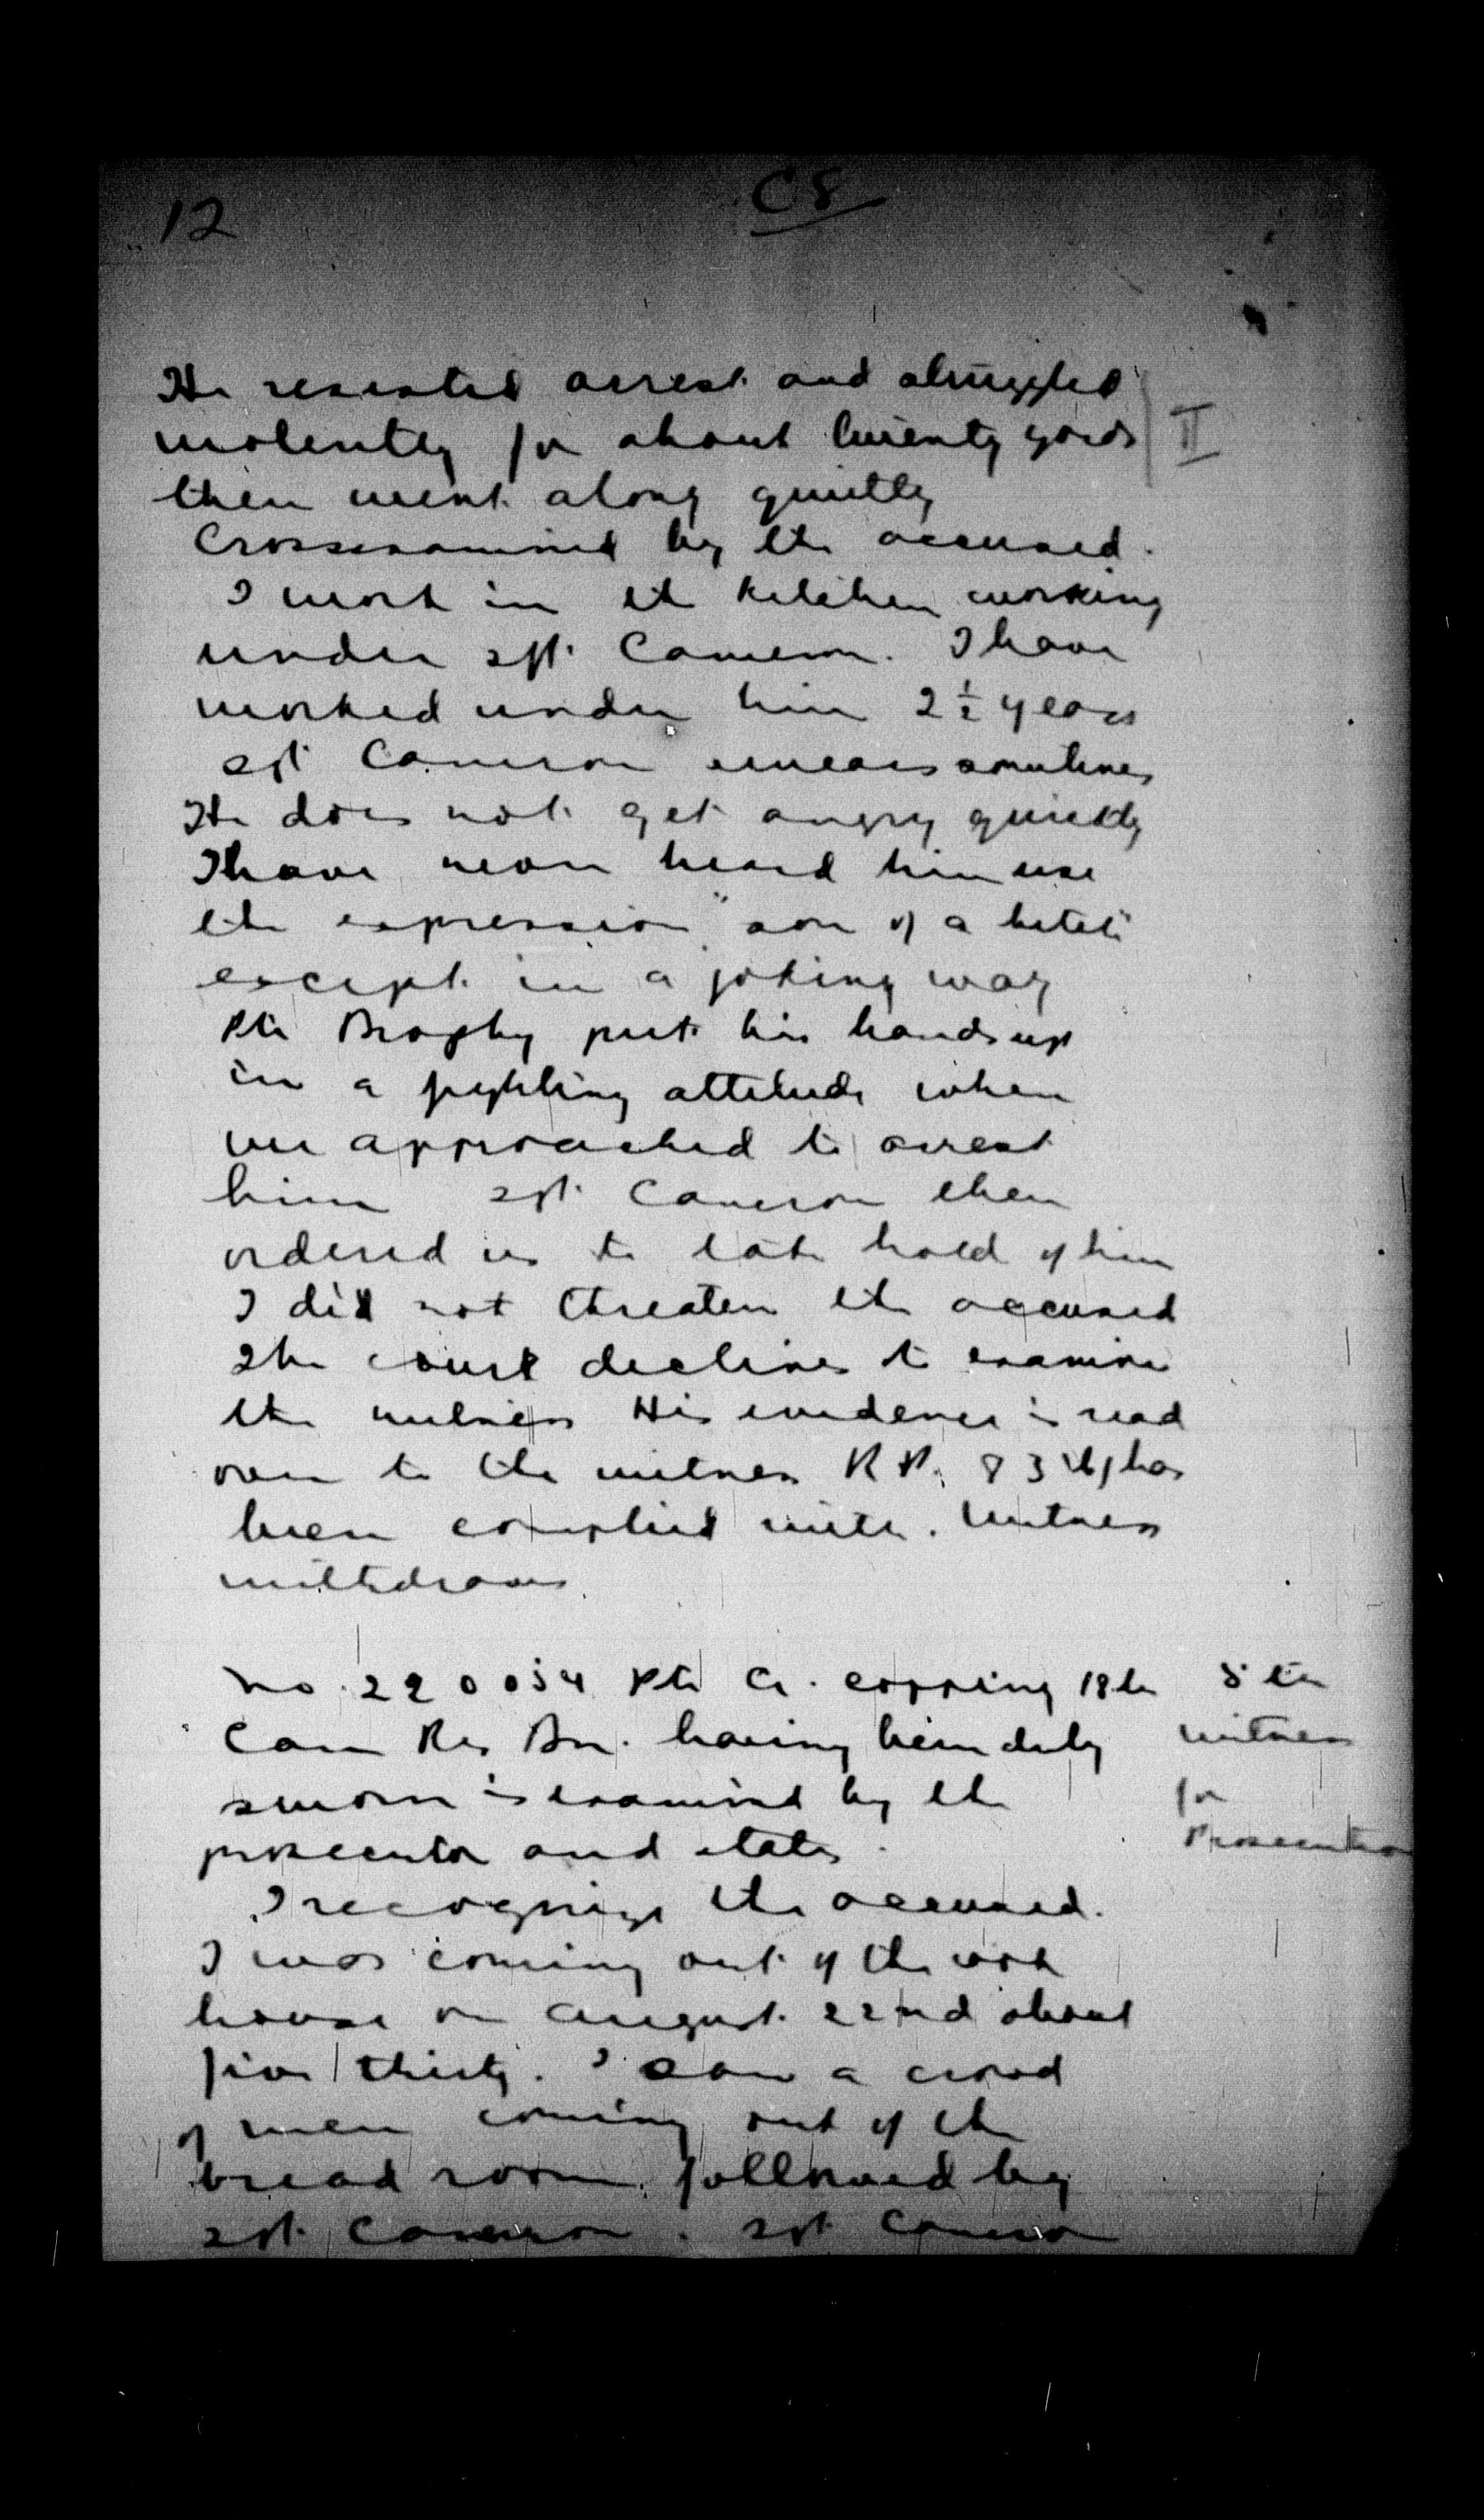 12
C8
He resisted arrest and struggled
violently for about twenty yards II
then went along quietly
Crossexamined by the accused.
I work in the kitchen working
under Sgt. Cameron. I have
worked under him 2 1/2 years
Sgt Cameron swears sometimes
He does not get angry quickly
I have never heard him use
the expression "son of a bitch"
except in a joking way
Pte Brophy put his hands up
in a fighting attitude when
we approached to arrest
him Sgt. Cameron then
ordered us to take hold of him
I did not threaten the accused
The court declines to examine
the witness His evidence is read
over to the witness R.P. 83 (b) has
been complied with. Witness
withdraws
No. 220054 Pte G. Copping 18th
Can Res Bn. having been duly
sworn is examined by the
prosecutor and states.
5th
witness
for
Prosecution
I recognize the accused.
I was coming out of the cook
house on August 22nd about
five thirty. I saw a crowd
of men coming out of the
bread room followed by
Sgt. Cameron. Sgt Cameron